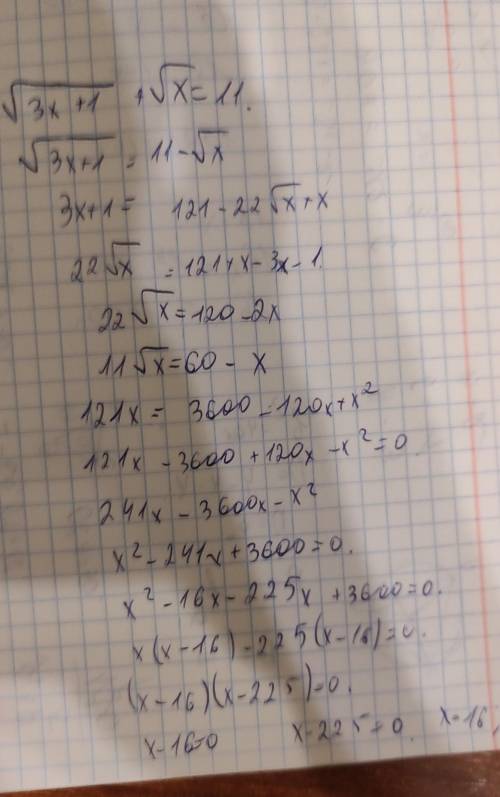 √(3x+1) + √x = 11.
√(3x+1) = 11 - √x
3x+1 = 121 - 22√x + x
22√x = 121 + x - 3x - 1.
22√x = 120 - 2x
11√x = 60 - x
121x = 3600 - 120x + x²
121x - 3600 + 120x - x² = 0
241x - 3600x - x²
x² - 241x + 3600 = 0.
x² - 16x - 225x + 3600 = 0.
x(x - 16) - 225(x - 16) = 0.
(x - 16)(x - 225) = 0.
x - 16 = 0 x - 225 = 0. x = 16